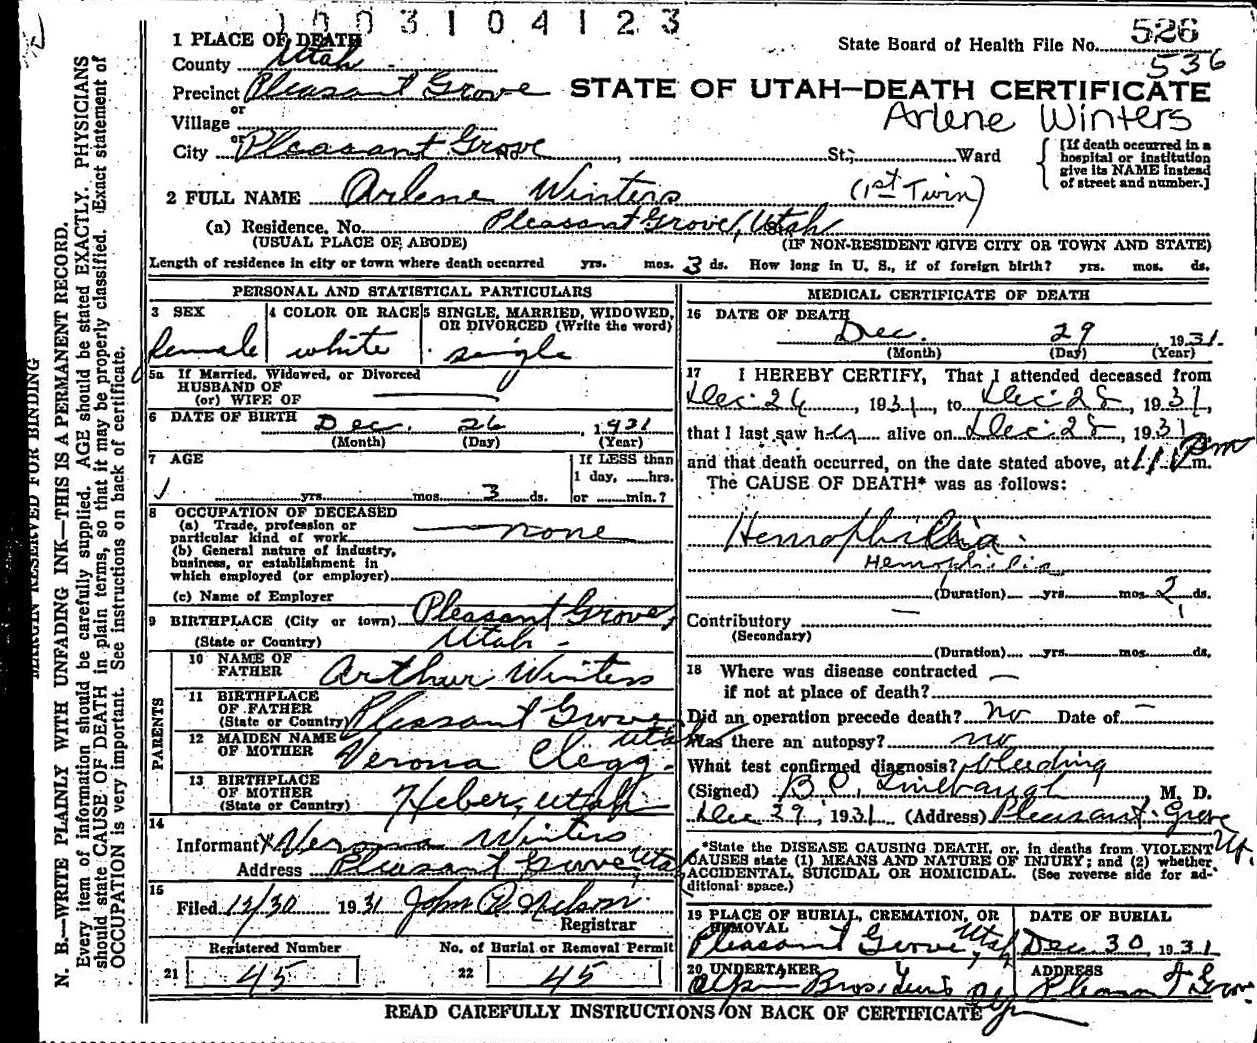 1003104123
1 PLACE OF DEATH
County Utah
State Board of Health File No. 526
536
Precinct Pleasant Grove
STATE OF UTAH—DEATH CERTIFICATE
or
Village
Arlene Winters
or
City Pleasant Grove No. , St.; Ward
[If death occurred in a
hospital or institution
give its NAME instead
of street and number.]
2 FULL NAME Arlene Winters (1st Twin)
(a) Residence. No. Pleasant Grove, Utah
(USUAL PLACE OF ABODE) (IF NON-RESIDENT GIVE CITY OR TOWN AND STATE)
Length of residence in city or town where death occurred yrs. mos. 3 ds. How long in U. S., if of foreign birth? yrs. mos. ds.
PERSONAL AND STATISTICAL PARTICULARS
3 SEX
female
4 COLOR OR RACE
white
5 SINGLE, MARRIED, WIDOWED,
OR DIVORCED (Write the word)
single
5a If Married, Widowed, or Divorced
HUSBAND OF
(or) WIFE OF
6 DATE OF BIRTH Dec. 26, 1931
(Month) (Day) (Year)
7 AGE
yrs. mos. 3 ds.
If LESS than
1 day, hrs.
or min.?
8 OCCUPATION OF DECEASED
(a) Trade, profession or
particular kind of work none
(b) General nature of industry,
business, or establishment in
which employed (or employer)
(c) Name of Employer
9 BIRTHPLACE (City or town) Pleasant Grove,
(State or Country) Utah -
PARENTS
10 NAME OF
FATHER Arthur Winters
11 BIRTHPLACE
OF FATHER
(State or Country) Pleasant Grove Utah
12 MAIDEN NAME
OF MOTHER Verona Clegg.
13 BIRTHPLACE
OF MOTHER
(State or Country) Heber, Utah
14
Informant x Verona Winters
Address Pleasant Grove, Utah
15
Filed 12/30 1931 John Nelson.
Registrar
Registered Number
21 45
No. of Burial or Removal Permit
22 45
MEDICAL CERTIFICATE OF DEATH
16 DATE OF DEATH
Dec. 29, 1931.
(Month) (Day) (Year)
17 I HEREBY CERTIFY, That I attended deceased from
Dec. 26, 1931, to Dec. 28, 1931,
that I last saw her alive on Dec. 28, 1931
and that death occurred, on the date stated above, at 11 Pm m.
The CAUSE OF DEATH* was as follows:
Hemophillia
Hemophilia
(Duration) yrs. mos. 2 ds.
Contributory —
(Secondary)
(Duration) yrs. mos. ds.
18 Where was disease contracted —
if not at place of death?
Did an operation precede death? no Date of -
Was there an autopsy? no
What test confirmed diagnosis? bleeding
(Signed) Linebaugh, M. D.
Dec 29, 1931 (Address) Pleasant Grove Ut.
*State the DISEASE CAUSING DEATH, or, in deaths from VIOLENT
CAUSES state (1) MEANS AND NATURE OF INJURY; and (2) whether
ACCIDENTAL, SUICIDAL OR HOMICIDAL. (See reverse side for ad-
ditional space.)
19 PLACE OF BURIAL, CREMATION, OR
REMOVAL
Pleasant Grove Utah
DATE OF BURIAL
Dec 30, 1931
20 UNDERTAKER
Bros.
ADDRESS
Pleasant Grove
READ CAREFULLY INSTRUCTIONS ON BACK OF CERTIFICATE
MARGIN RESERVED FOR BINDING
N. B.—WRITE PLAINLY WITH UNFADING INK—THIS IS A PERMANENT RECORD.
Every item of information should be carefully supplied. AGE should be stated EXACTLY. PHYSICIANS
should state CAUSE OF DEATH in plain terms, so that it may be properly classified. Exact statement of
OCCUPATION is very important. See instructions on back of certificate.